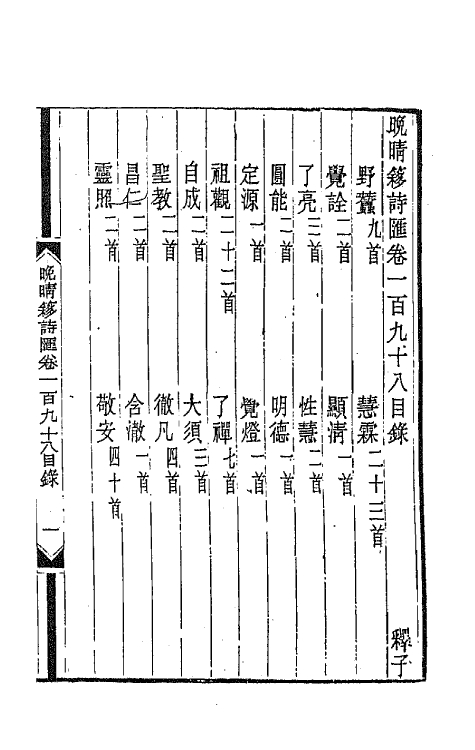 晚晴簃詩匯卷一百九十八目錄
釋子
野蠶九首 慧霖二十三首
覺詮二首 顯清一首
了亮三首 性慧二首
圓能二首 明德一首
定源一首 覺燈一首
祖觀二十二首 了禪七首
自成二首 大須三首
聖教二首 徹凡四首
昌仁二首 含澈一首
靈照二首 敬安四十首
晚晴簃詩匯卷一百九十八目錄 一